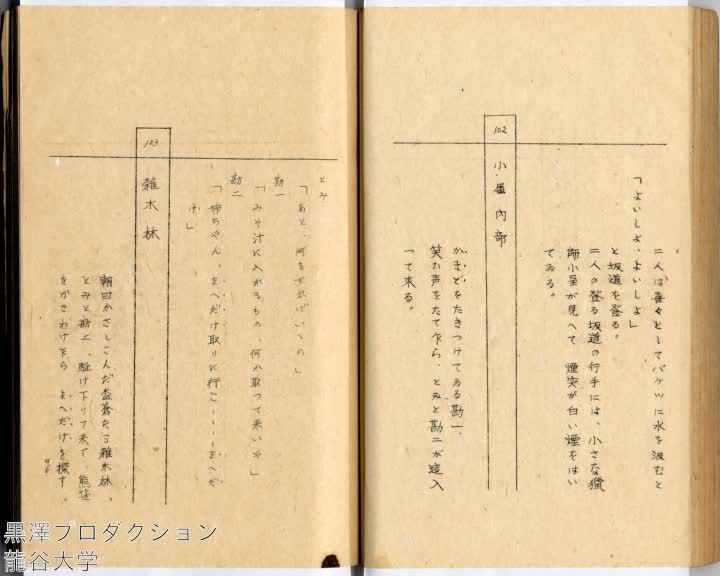 二人は喜々としてバケツに水を汲むと
「よいしよ、よいしよ」
と坂道を登る。
二人の登る坂道の行手には、小さな獵
師小屋が見へて 煙突が白い煙をはい
てゐる。
102
小屋内部
かまどをたきつけてゐる勘一、
笑ひ声をたて乍ら、とみと勘二が這入
って来る。
とみ
「あと、何をすればいゝの」
勘一
「みそ汁に入れるもの、何か取って来いや」
勘二
「姉ちやん、まへだけ取りに行こ・・・・まへだ
け」
103
雜木林
朝日がさしこんだ鬱蒼たる雜木林。
とみと勘二、駈け下りて来て、熊笹
をかきわけ乍ら まへだけを探す。
黒澤プロダクション
龍谷大学